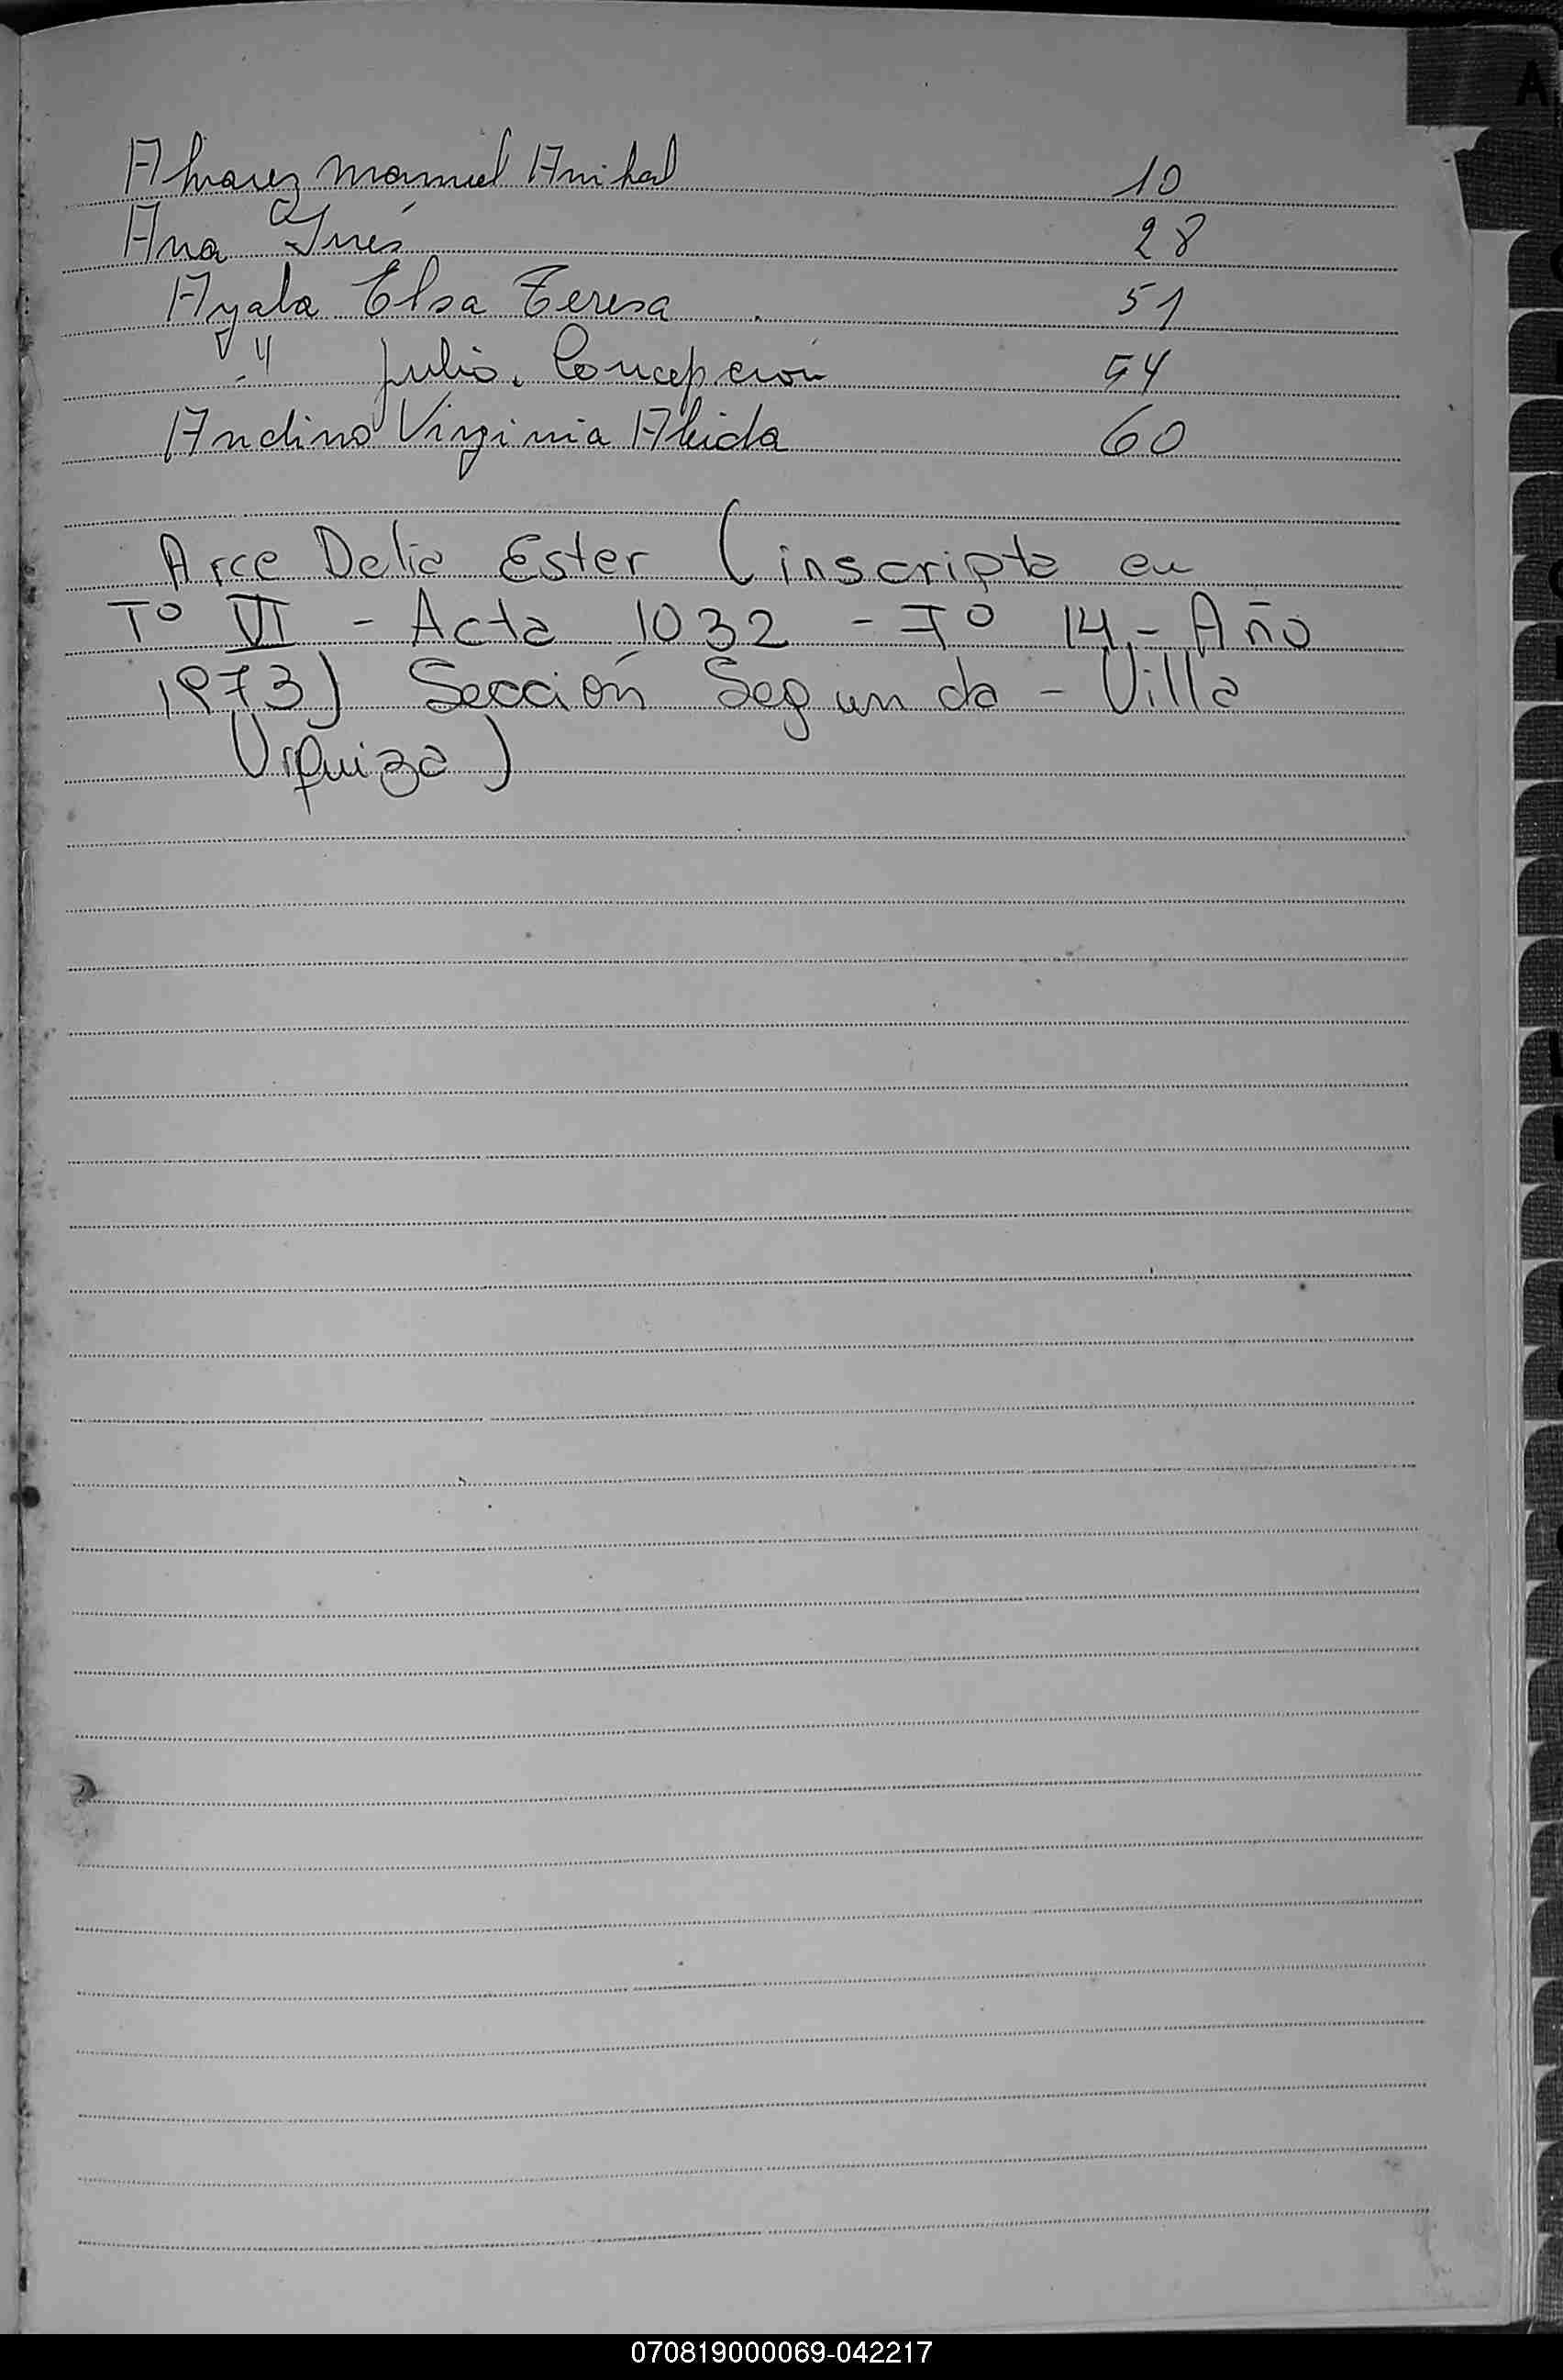 A
Alvarez Manuel Anibal 10
Ana Inés 28
Ayala Elsa Teresa 51
" Julio. Concepción 54
Andino Virginia Aleida 60
Arce Delia Ester (inscripta en
Tº VI - Acta 1032 - Fº 14 - Año
1973) Sección Segunda - Villa
Urquiza)
070819000069-042217